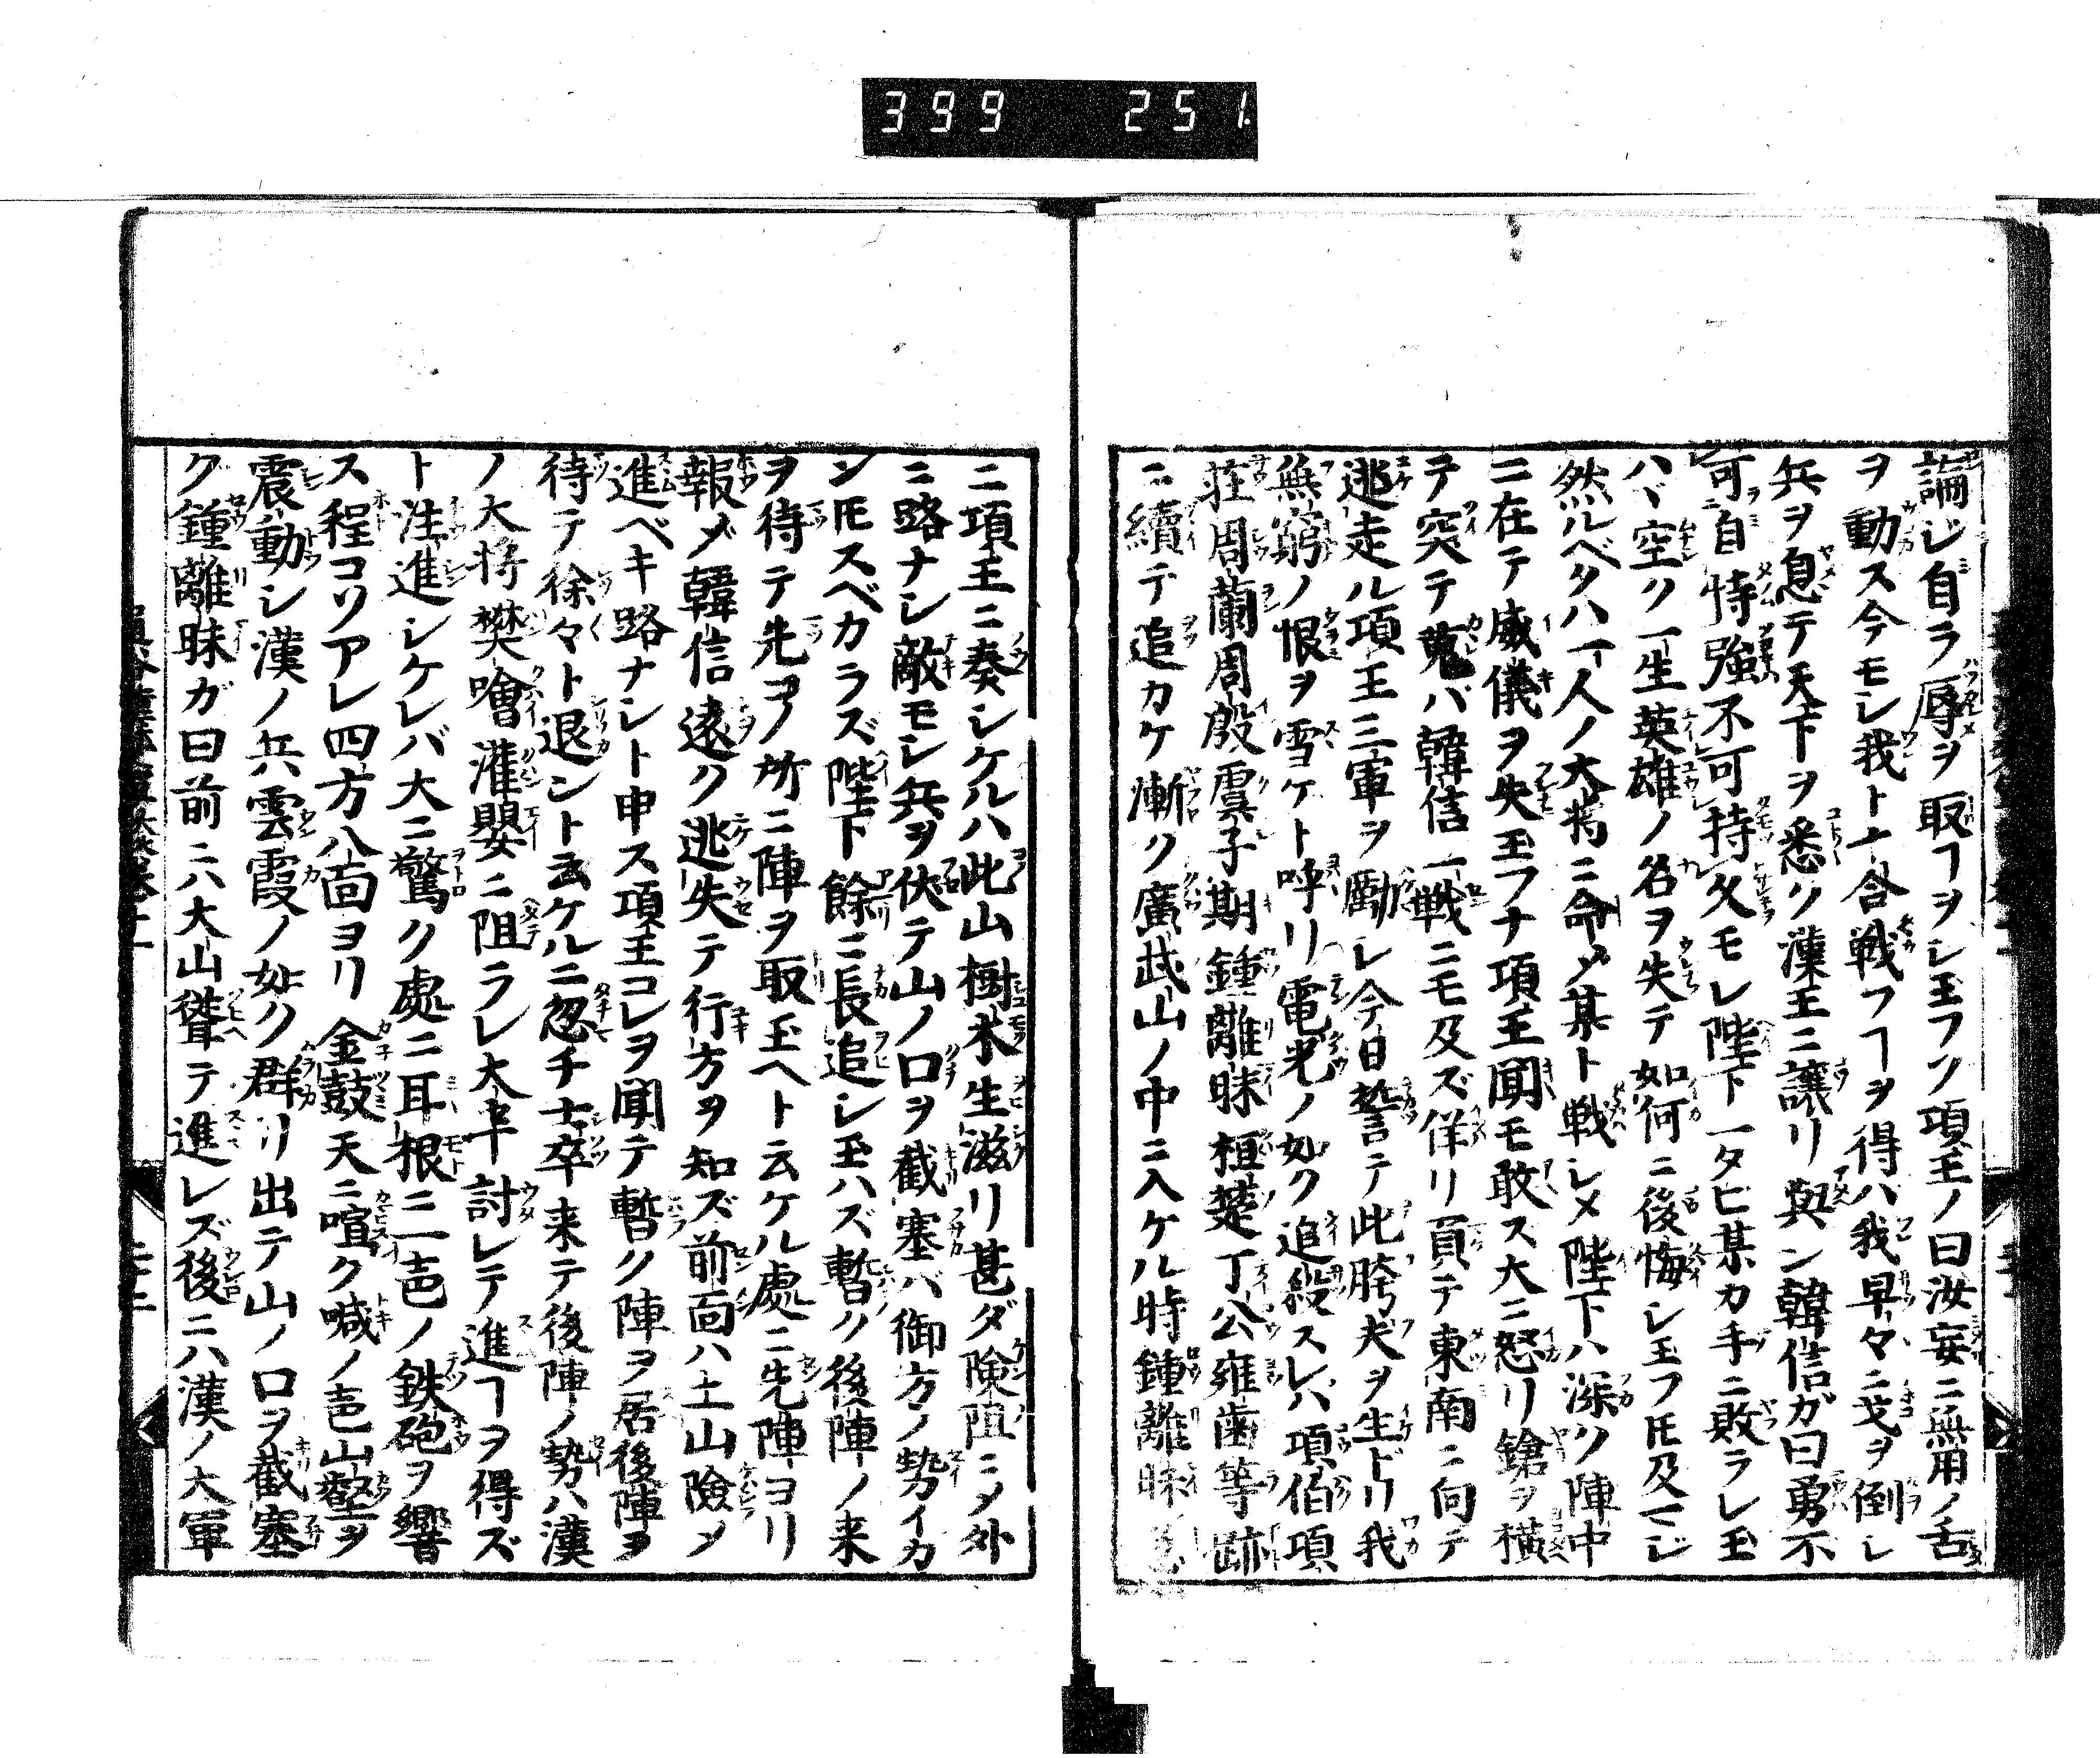 399 251
論ジ自ラ辱ヲ取ヿヲシ玉フソ項王ノ曰汝妄ニ無用ノ舌
ヲ動ス今モシ我ト十合戦フヿヲ得バ我早々ニ戈ヲ倒シ
兵ヲ息テ天下ヲ悉ク漢王ニ譲リ與ン韓信ガ曰勇不
可自恃強不可持久モシ陛下一タビ某カ手ニ敗ラレ玉
ハヾ空ク一生英雄ノ名ヲ失テ如何ニ後悔シ玉フ𪜈及マジ
然ルベクハ一人ノ大将ニ命メ某ト戦シメ陛下ハ深ク陣中
ニ在テ威儀ヲ失玉フナ項王聞モ敢ス大ニ怒リ鎗ヲ横
テ突テ蒐バ韓信一戦ニモ及ズ佯リ負テ東南ニ向テ
逃走ル項王三軍ヲ勵シ今日誓テ此胯夫ヲ生ドリ我
無窮ノ恨ヲ雪ケト呼リ電光ノ如ク追殺スレバ項伯項
莊周蘭周殷虞子期鍾離昧桓楚丁公雍歯等跡
ニ續テ追カケ漸ク廣武山ノ中ニ入ケル時鍾離昧
ニ項王ニ奏シケルハ此山樹木生滋リ甚ダ険阻ニメ外
ニ路ナシ敵モシ兵ヲ伏テ山ノ口ヲ截塞バ御方ノ勢イカ
ン𪜈スベカラズ陛下餘ニ長追シ玉ハズ暫ク後陣ノ来
ヲ待テ先ヅ所ニ陣ヲ取玉ヘト云ケル處ニ先陣ヨリ
報メ韓信遠ク逃失テ行方ヲ知ズ前面ハ土山險メ
進ベキ路ナシト申ス項王コレヲ聞テ暫ク陣ヲ居後陣ヲ
待テ徐々ト退ント云ケルニ忽チ士卒来テ後陣ノ勢ハ漢
ノ大将樊噲灌嬰ニ阻ラレ大半討レテ進ヿヲ得ズ
ト注進シケレバ大ニ驚ク處ニ耳根ニ一声ノ鉄砲ヲ響
ス程コソアレ四方八面ヨリ金鼓天ニ喧ク喊ノ声山壑ヲ
震動シ漢ノ兵雲霞ノ如ク群リ出テ山ノ口ヲ截塞
ク鍾離昧ガ曰前ニハ大山聳テ進レズ後ニハ漢ノ大軍